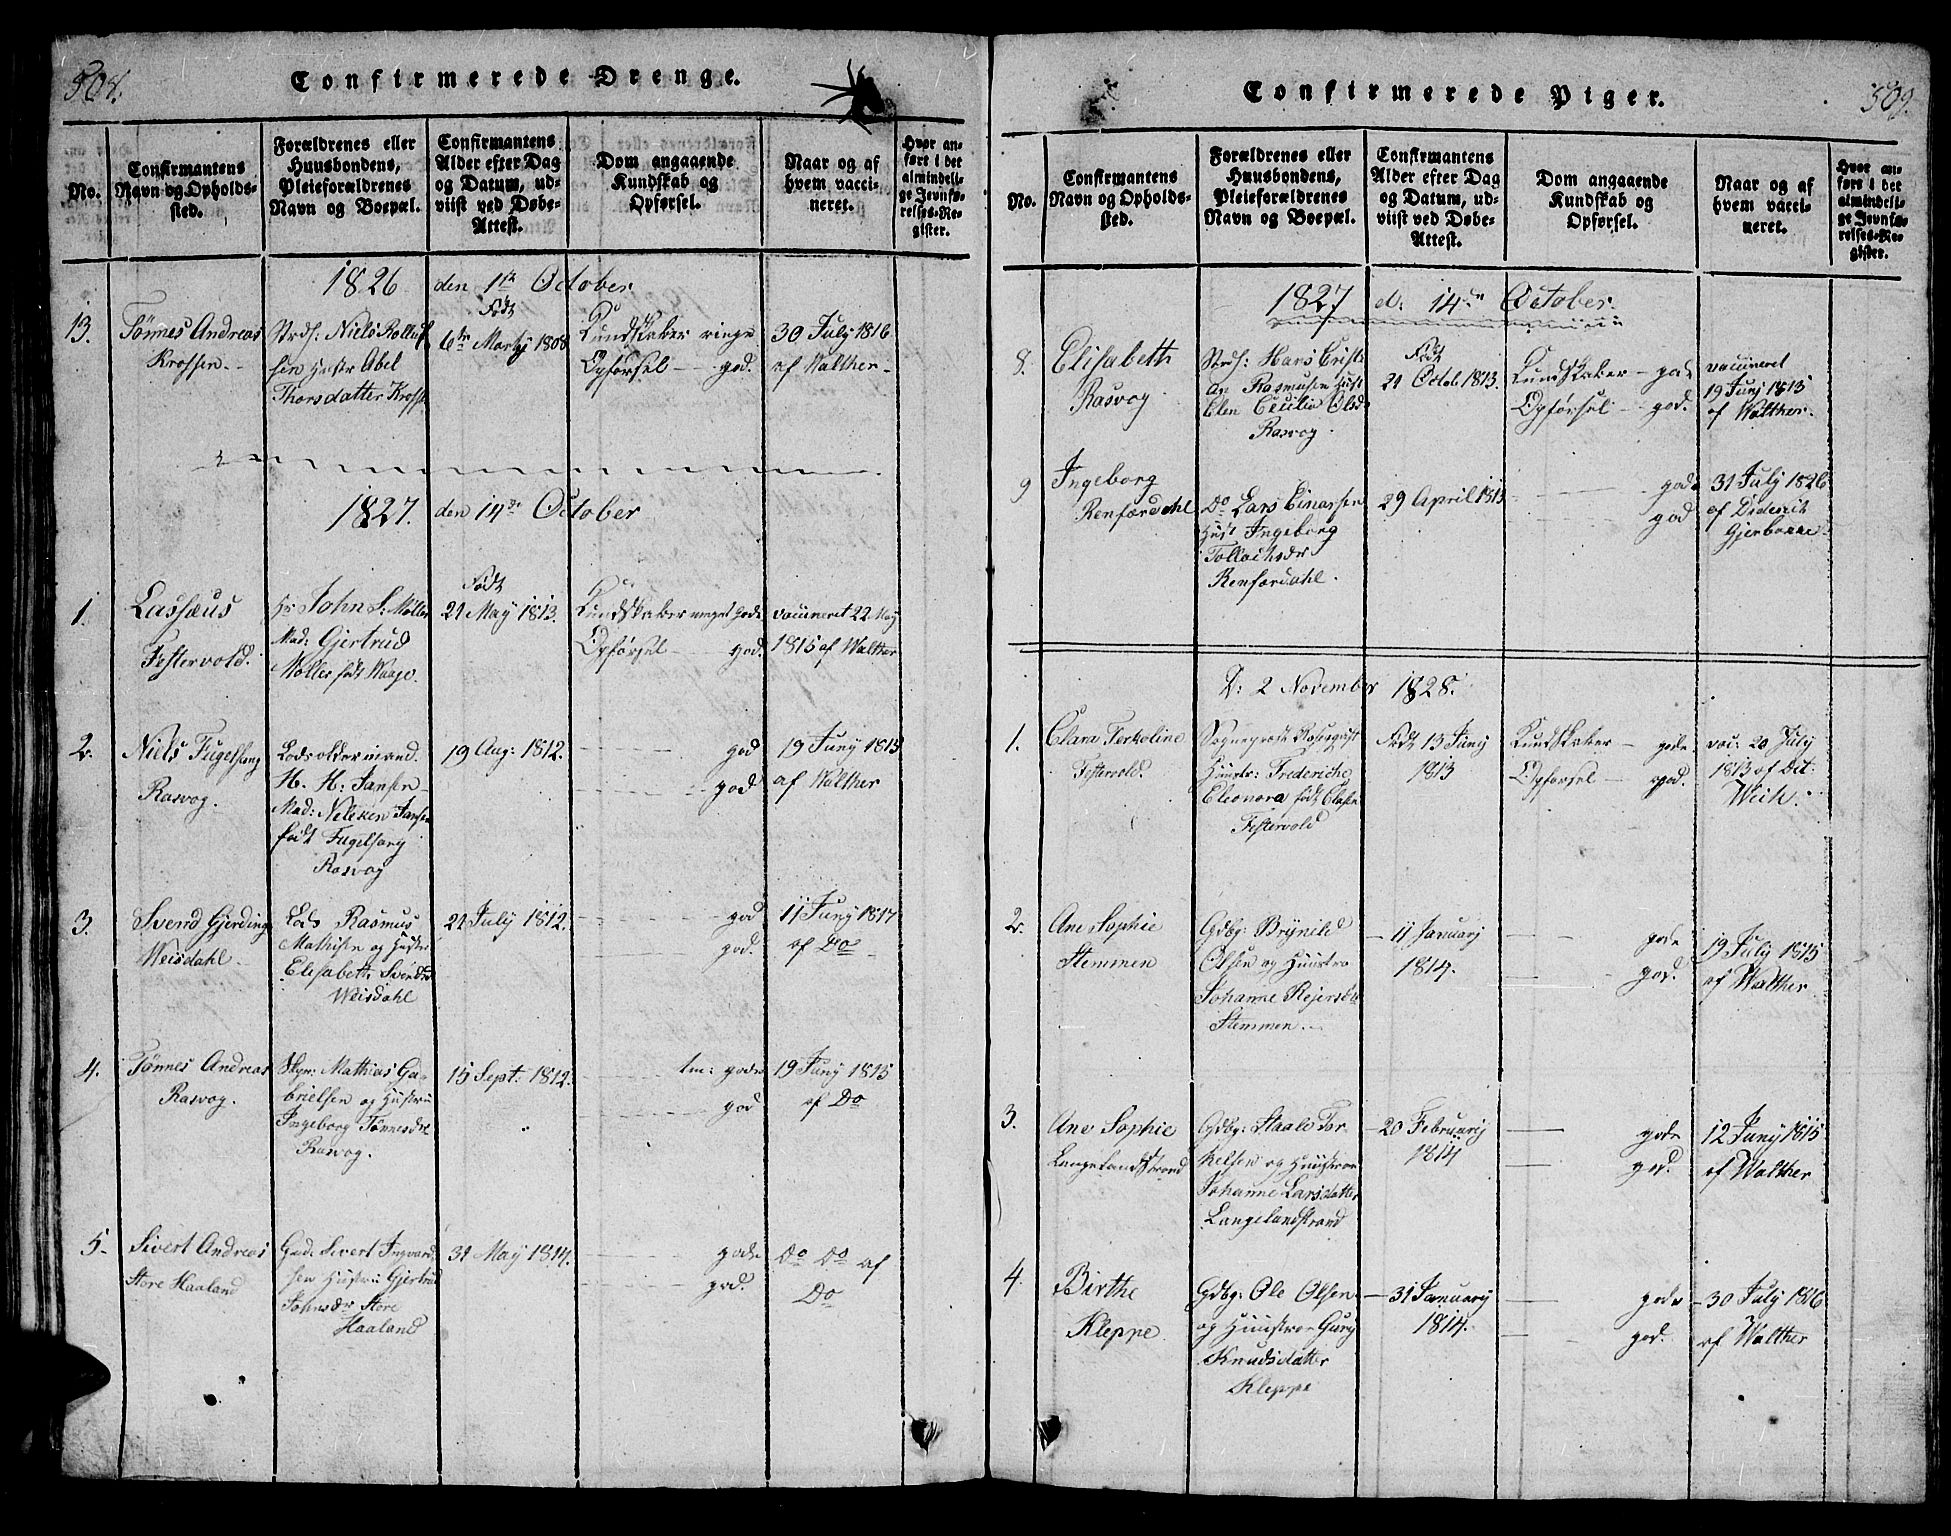 508.
Confirmerede Drenge.
No.
Confirmantens
Navn og Opholds-
sted.
Forældrenes eller
Huusbondens,
Pleieforældrenes
Navn og Boepæl.
Confirmantens
Alder efter Dag
og Datum, ud-
viist ved Døbe-
Attest.
Dom angaaende
Kundskab og
Opførsel.
Naar og af
hvem vacci-
neret.
Hvor an-
ført i det
almindeli-
ge Jevnfø-
relses-Re-
gister.
1826 den 1te October
13.
Tønnes Andreas
Krossen.
Strds: Niels Rolluf
sen Hustr Abel
Thorsdatter Kross
Født
6te Martij 1808
Kundskaber ringe
Opførsel — god.
30 July 1816
af Walther
1827. den 14de October
1.
Lassæus
Festervold.
Hr John S: Møller
Mad: Gjertrud
Møller født Waage.
Født
21 May 1813.
Kundskaber meget gode
Opførsel — god.
vaccineret 22 May
1815 af Walther
2.
Niels Fugelsang
Rasvog.
Lodsoldermand
H. H: Jansen
Mad: Neleken Jansen
født Fugelsang
Rasvog
19 Aug: 1812.
god
god
19 Juny 1815
af Walther
3.
Svend Gjerding
Weisdahl.
Lods Rasmus
Mathisen og Hustr
Elisabeth Svendsd
Weisdahl
21 July 1812.
god
god.
11 Juny 1817
af Do
4.
Tønnes Andreas
Rasvog.
Mathias Ga-
brielsen og Hustru
Ingeborg Tønnesdr
Rasvog.
15 Sept: 1812.
tm: gode
god
19 Juny 1815
af Do
5.
Sivert Andreas
Store Haaland
Gad. Sivert Ingvard
sen Hustru Gjertrud
Johnsdr Store
Haaland
31 May 1814.
gode
god.
Do Do af
Do
509.
Confirmerede Piger.
No.
Confirmantens
Navn og Opholds-
sted.
Forældrenes eller
Huusbondens,
Pleieforældrenes
Navn og Boepæl.
Confirmantens
Alder efter Dag
og Datum, ud-
viist ved Døbe-
Attest.
Dom angaaende
Kundskab og
Opførsel.
Naar og af
hvem vacci-
neret.
Hvor an-
ført i det
almindeli-
ge Jevnfø-
relses-Re-
gister.
1827 d: 14de October.
8.
Elisabeth
Rasvog.
Strds: Hans Cristi
an Rasmusen Hust
Elen Cecilia Olsd
Rasvog.
Født
21 Octob. 1813.
Kundskaber — gode
Opførsel — god.
vaccineret
19 Juny 1815
af Walther.
9
Ingeborg
Renfærdahl
Do Lars Einarsen
Hust Ingeborg
Renfærdahl.
29 April 1813
gode
god
31 July 1826
af Diderich
Gjerbonne
D: 2 November 1828.
1.
Clara Terkeline
Festervold.
Sogneprest Rosenqvist
Huustr: Frederiche
Eleonora født Clasen
Festervold
Født 13 Juny
1813
Kundskaber — gode
Opførsel — god.
vac: 20 July
1813 af Dit:
Wich.
2.
Ane Sophie
Stemmen
Gdbg: Brynild
Olsen og Huustro
Johanne Rejersd
Stemmen.
11 January
1814.
gode
god.
19 July 1815
af Walther
3.
Ane Sophie
Langelandstrand
Gdbg: Staale Tor-
kelsen og Huustroe
Johanne Larsdatter
Langelandstrand
20 February
1814
gode
god.
12 Juny 1815
af Walther
4.
Birthe
Kleppe
Gdbg: Ole Olsen
og Huustroe Gury
Knudsdatter
Kleppe
31 January
1814.
gode
god.
30 July 1816
af Walther